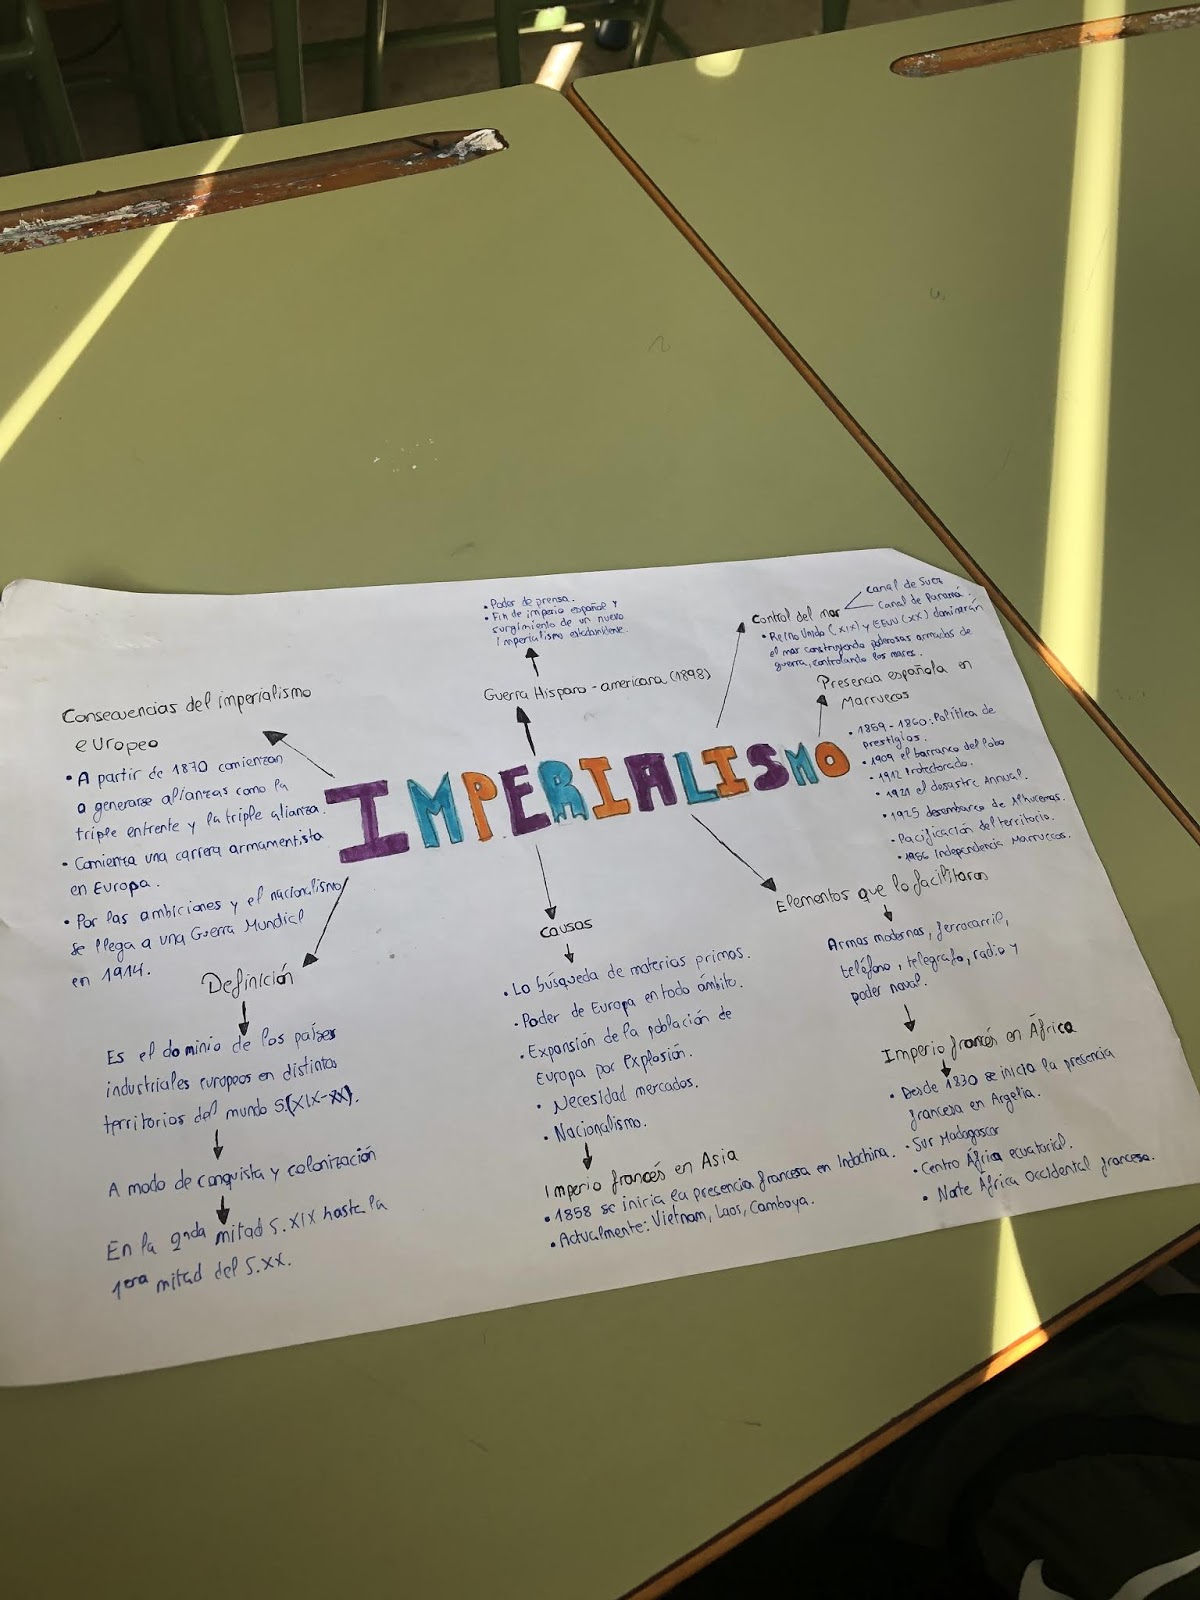 • Poder de prensa.
• Fin de imperio español y
surgimiento de un nuevo
Imperialismo estadounidense.
Guerra Hispano-americana (1898)
Control del mar
Canal de Suez
Canal de Panamá.
• Reino Unido (XIX) y EEUU (XX) dominarán
el mar construyendo poderosas armadas de
guerra, controlando los mares.
Presencia española en
Marruecos
• 1859-1860: Política de
prestigios.
• 1909 el barranco del lobo
• 1912 Protectorado.
• 1921 el desastre Annual.
• 1925 desembarco de Alhucemas.
- Pacificación del territorio.
• 1956 Independencia Marruecos.
Consecuencias del imperialismo
europeo
• A partir de 1870 comienzan
a generarse alianzas como la
triple entente y la triple alianza.
• Comienza una carrera armamentista
en Europa.
• Por las ambiciones y el nacionalismo
se llega a una Guerra Mundial
en 1914.
IMPERIALISMO
Definición
Es el dominio de los países
industriales europeos en distintos
territorios del mundo S.(XIX-XX).
A modo de conquista y colonización
En la 2nda mitad S.XIX hasta la
1era mitad del S.XX.
Causas
• La búsqueda de materias primas.
• Poder de Europa en todo ámbito.
• Expansión de la población de
Europa por explosión.
• Necesidad mercados.
• Nacionalismo.
Imperio francés en Asia
• 1858 se inicia la presencia francesa en Indochina.
• Actualmente: Vietnam, Laos, Camboya.
Elementos que lo facilitaron
Armas modernas, ferrocarril,
teléfono, telegrafo, radio y
poder naval.
Imperio francés en África
• Desde 1830 se inicio la presencia
francesa en Argelia.
• Sur Madagascar
• Centro África ecuatorial.
• Norte África Occidental francesa.